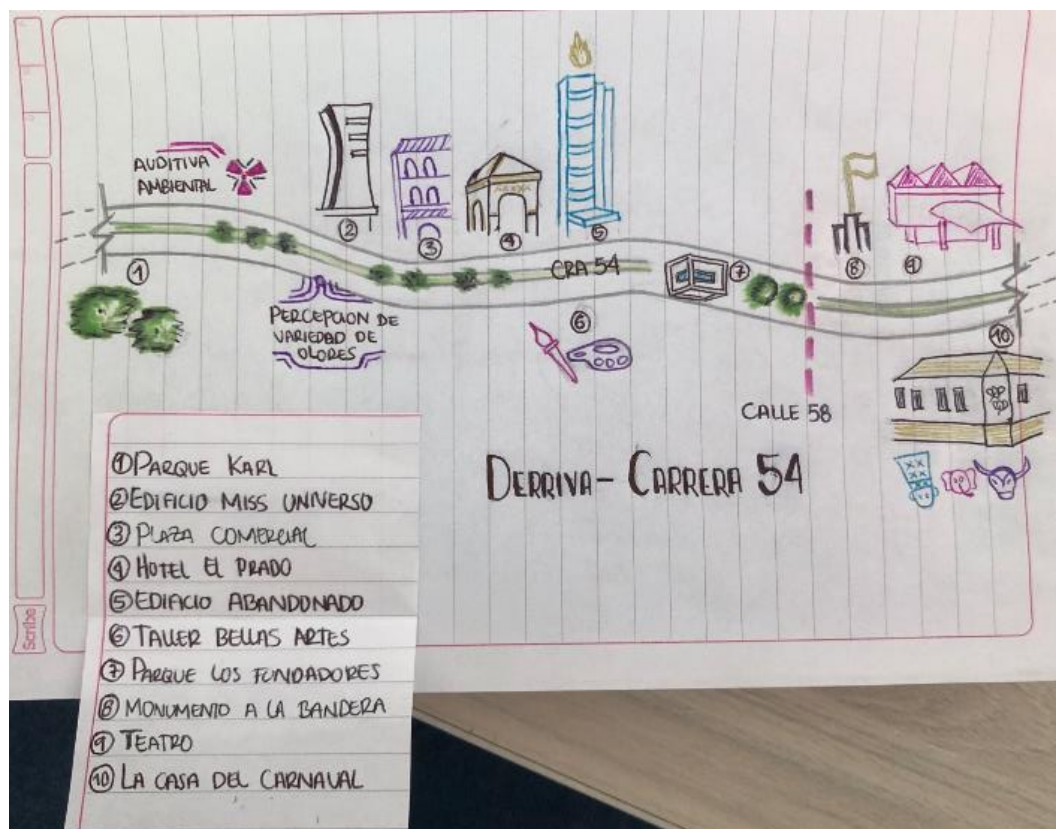 AUDITIVA
AMBIENTAL
①
②
③
④
⑤
CRA 54
⑥
⑦
⑧
⑨
⑩
PERCEPCION DE
VARIEDAD DE
OLORES
CALLE 58
DERRIVA - CARRERA 54
① PARQUE KARL
② EDIFICIO MISS UNIVERSO
③ PLAZA COMERCIAL
④ HOTEL EL PRADO
⑤ EDIFICIO ABANDONADO
⑥ TALLER BELLAS ARTES
⑦ PARQUE LOS FUNDADORES
⑧ MONUMENTO A LA BANDERA
⑨ TEATRO
⑩ LA CASA DEL CARNAVAL
Scribe